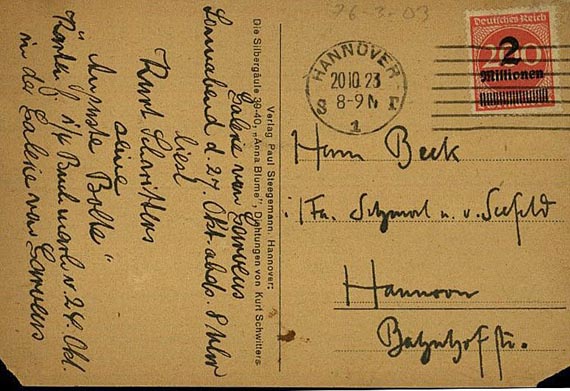 76-3-03
Galerie von Garvens
Sonnabend d. 27. Okt. abds. 8 Uhr
liest
Kurt Schwitters
seine
"Auguste Bolte"
Karten j. i/r Buchmarl v. 24. Okt.
in der Galerie von Garvens
Verlag Paul Steegemann, Hannover:
Die Silbergäule 39-40, „Anna Blume", Dichtungen von Kurt Schwitters
HANNOVER
20.10.23
8-9 N
1
Deutsches Reich
200
2
Millionen
Herrn Beck
i/Fa. Schmorl u. v. Seefeld
Hannover
Bahnhofstr.